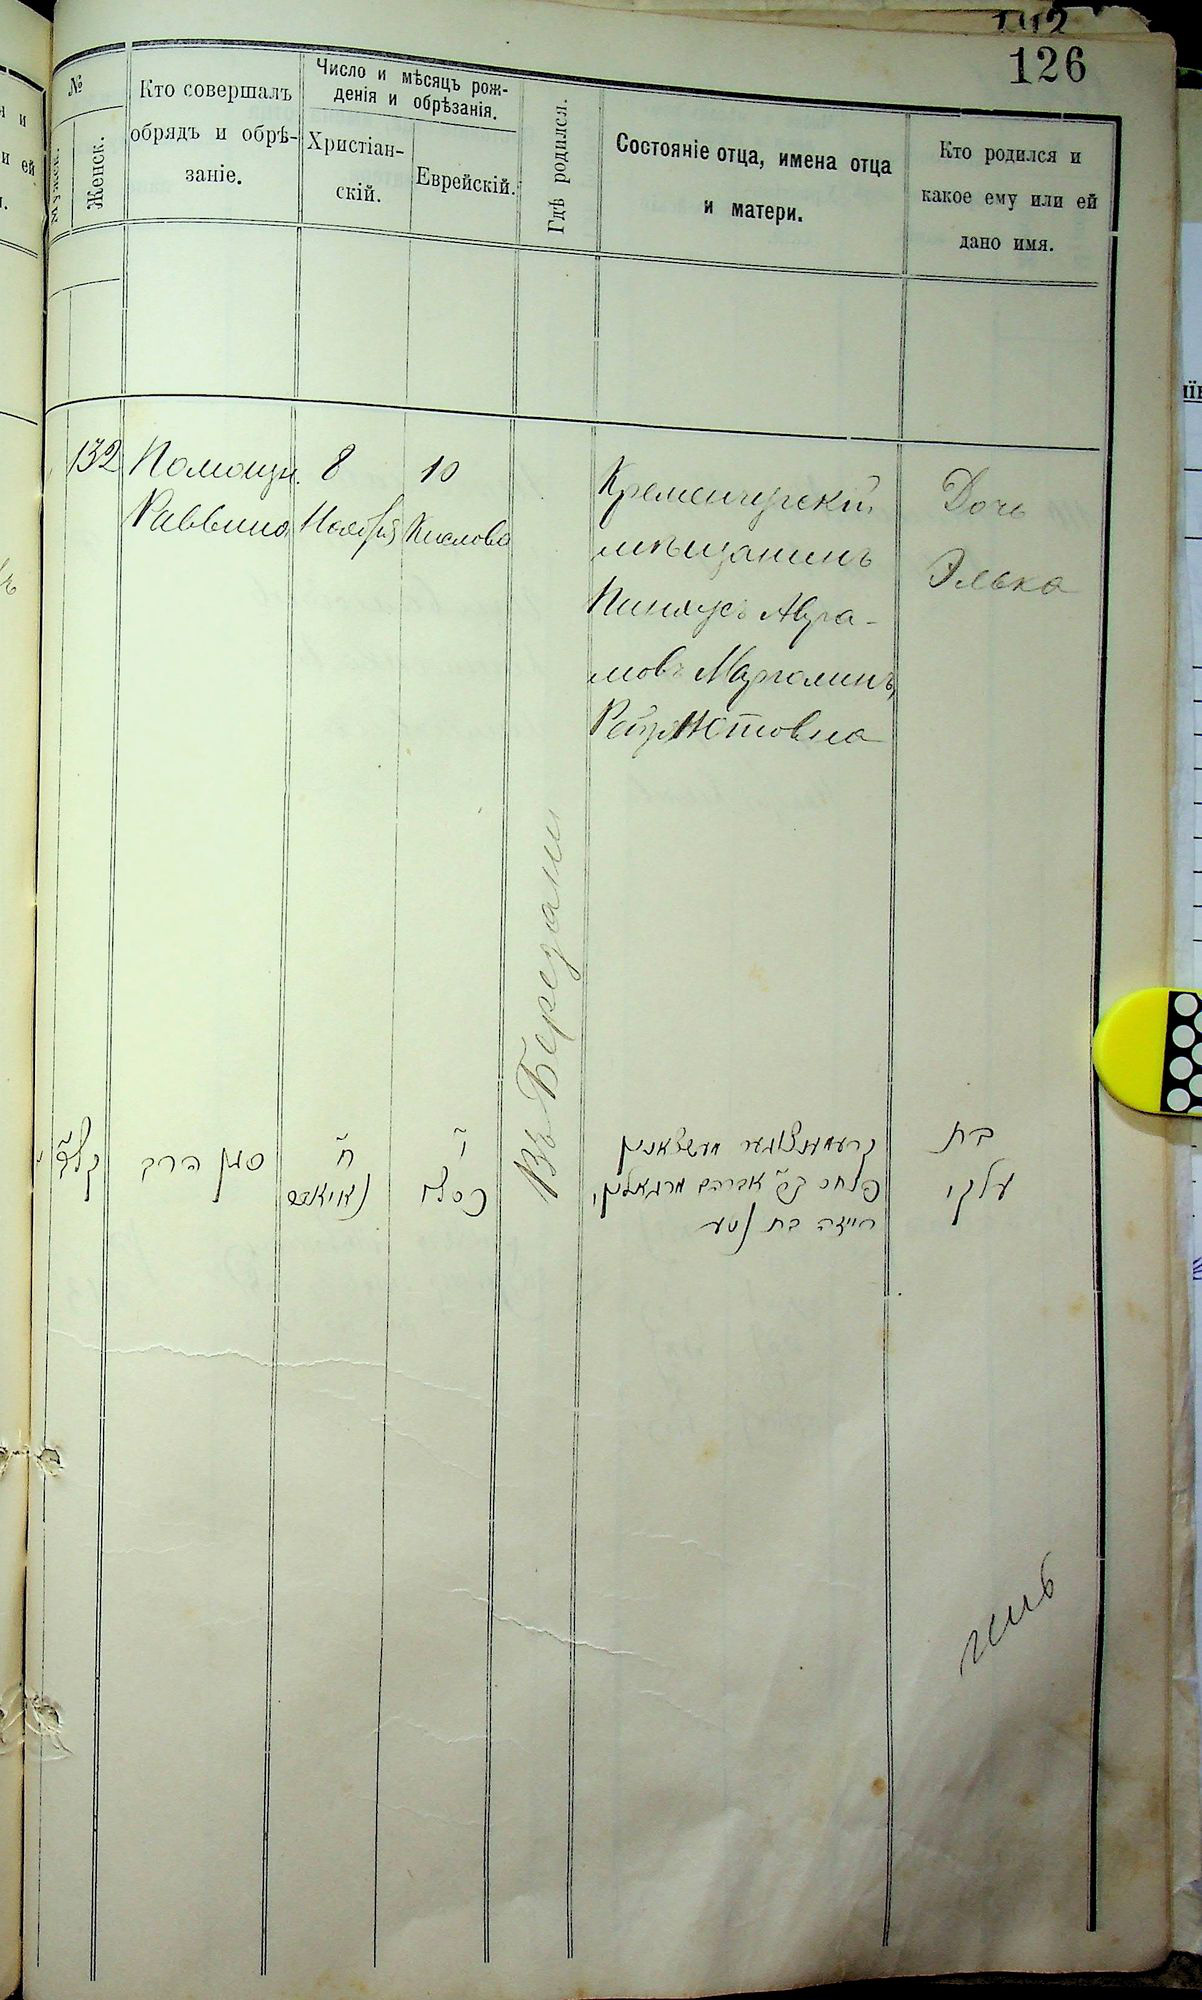 126
№
Мужск.
Женск.
Кто совершалъ
обрядъ и обрѣ-
заніе.
Число и мѣсяцъ рож-
денія и обрѣзанія.
Христіан-
скій.
Еврейскій.
Гдѣ родился.
Состояніе отца, имена отца
и матери.
Кто родился и
какое ему или ей
дано имя.
132
Помощн.
Раввина
8
Ноября
10
Кислова
Въ Березани
Кременчугскій
мѣщанинъ
Пинхусъ Авра-
мовъ Марголинъ,
Нотовна
Дочь
Элька
קל״ב
סגן הרב
ח״
נאיאבר
י״
כסלו
קרעמענטשוגער מעשצאנין
פנחס אברהם מרגאלין,
חיידה בת נטע
בת
עלקי